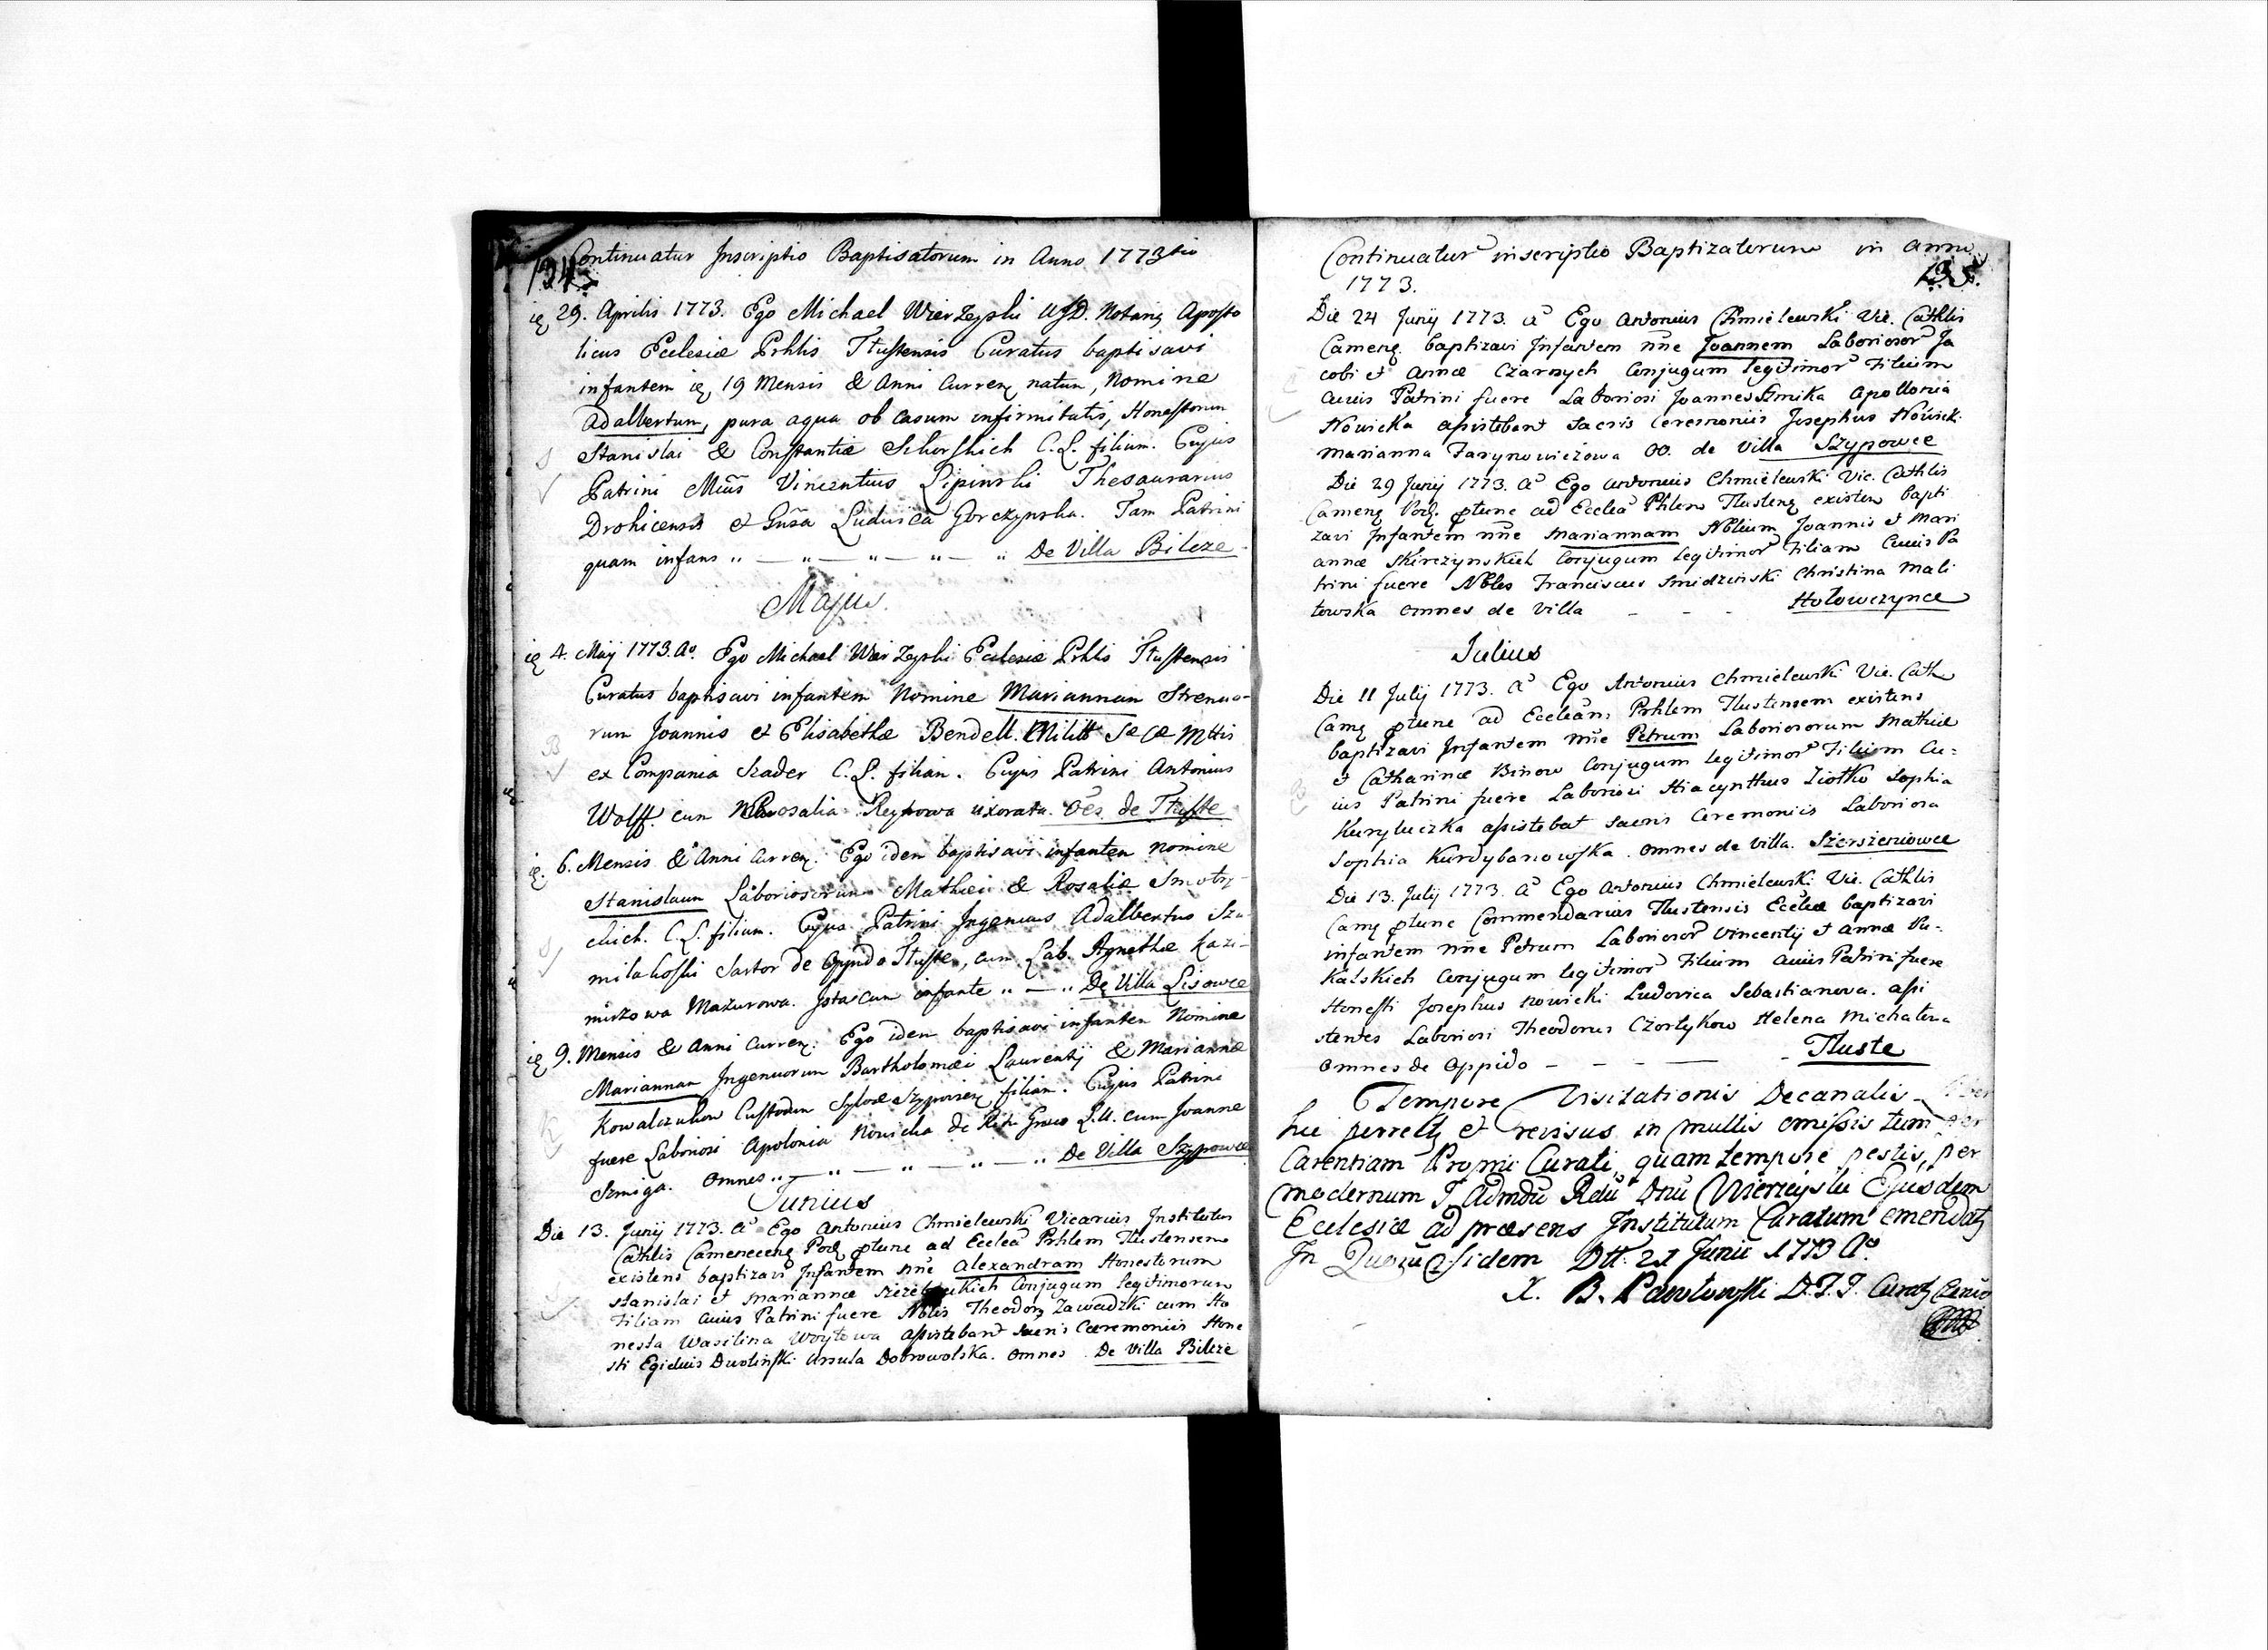 134.
Continuatur Inscriptio Baptisatorum in Anno 1773tio
29. Aprilis 1773. Ego Michael Wierzeyski USD. Notarig Aposto
licus Ecclesiæ Prhlis Tłustensis Curatus baptisavi
infantem 19 Mensis & Anni Curren natum, Nomine
Adalbertum, pura aqua ob casum infirmitatis, Honestorum
Stanislai & Constantiæ C. L. filium. Cujus
Patrini Vincentius Lipinski Thesaurarius
Drohicensis et Ludvica Gorczynska. Tam Patrini
quam infans „ — „ — „ — „ — „ De Villa Bilcze
Majus.
4. Maij 1773. Ao. Ego Michael Wierzeyski Eclesiæ Prhlis Tłustensis
Curatus baptisavi infantem Nomine Mariannam Strenuo-
rum Joannis et Elisabethæ Bendell. Milit Sæ Cæ Mttis
ex Compania Szader C. L. filiam. Cujus Patrini Antonius
Wolff. cum Rosalia Reynowa uxorata. Oes de Tłuste
6. Mensis & Anni Curren. Ego idem baptisavi infantem nomine
Stanislaum Laboriosorum Mathæi & Rosaliæ Smotry-
ckich. C. L. filium. Cujus Patrini Ingenuus Adalbertus Szu-
milakoski Sartor de Oppido Tłuste, cum Lab. Agnethæ Kazi-
mirzowa Mazurowa. Ista cum infante „ — „ De Villa Lisowce
9. Mensis & Anni Curren. Ego idem baptisavi infantem Nomine
Mariannam Ingenuorum Bartholomæi Laurentij & Mariannæ
Kowalczukow Custodum Sylvæ filiam. Cujus Patrini
fuere Laboriosi Apolonia Nowicka de Ritu Græco L.U. cum Joanne
Szmiga. Omnes „ — „ — „ — „ — „ De Villa Szypowce
Junius
Die 13. Junij 1773. A Ego Antonius Chmielewski Vicarius Institutus
Cathlis Camenecen Pod ptunc ad Eccleã Prhlem Tlustensem
existens baptizavi Infantem nne Alexandram Honestorum
Stanislai et Mariannæ Conjugum legitimorum
Filiam Cuius Patrini fuere Nblis Theodor Zawadzki cum Ho
nesta Wasilina Woytowa assistebant Sacris Cæremoniis Hone
sti Egidius Dwoliński Ursula Dobrowolska. Omnes De Villa Bilcze
Continuatur inscriptio Baptizatorum in anno
1773.
135.
Die 24 Junij 1773. A Ego Antonius Chmielewski Vic. Cathlis
Camene. baptizavi Infantem nne Joannem Laborioror Ja
cobi et Annæ Czarnych Conjugum legitimor Filium
Cuius Patrini fuere Laboriosi Joannes Szmika Apollonia
Nowicka assistebant Sacris Ceremoniis Josephus Nowick
Marianna Farynowiczowa OO. de Villa Szypowce
Die 29 Junij 1773. A Ego Antonius Chmielewski Vic. Cathlis
Camene Pod. ptunc ad Eccleã Phlem Tlusten existen bapti
zavi Infantem nne Mariannam Nblium Joannis et Mari
annæ Skirczynskich Conjugum legitimor Filiam Cuius Pa
trini fuere Nbles Franciscus Smidzinski Christina Mali
towska Omnes de Villa - - - Hołowczynce
Julius
Die 11 Julij 1773. A Ego Antonius Chmielewski Vic. Cath
Camene ptunc ad Eccleam Prhlem Tlustensem existens
baptizavi Infantem nne Petrum Laboriosorum Mathiæ
et Catharinæ Binow Conjugum legitimor Filium Cu=
ius Patrini fuere Laboriosi Hiacynthus Ziotko Sophia
Kuryluczka assistebat sacris Ceremoniis Laboriosa
Sophia Kurdybanowska. Omnes de Villa. Szerszeniowce
Die 13. Julij 1773. A Ego Antonius Chmielewski Vic. Cathlis
Camene ptunc Commendarius Tlustensis Eccliæ baptizavi
infantem nne Petrum Laborioror Vincentij et Annæ Pu=
kalskich Conjugum legitimor Filium Cuius Patrini fuere
Honesti Josephus Nowicki Ludovica Sebastianowa. assi
stentes Laboriosi Theodorus Czortykow Helena Michalowa
Omnes de Oppido - - — - Tluste
Tempore Visitationis Decanalis Liber
hic et revisus in multis omissis tum per
Carentiam Proprii Curati, quam tempore pestis, per
modernum Admdū Rdū Dnū Wierzeyski Ejusdem
Ecclesiæ ad præsens Institutum Curatum emendat
In Quorū fidem Dtt. 21 Junii 1773 Ao.
X. B. Pawłowski Curat